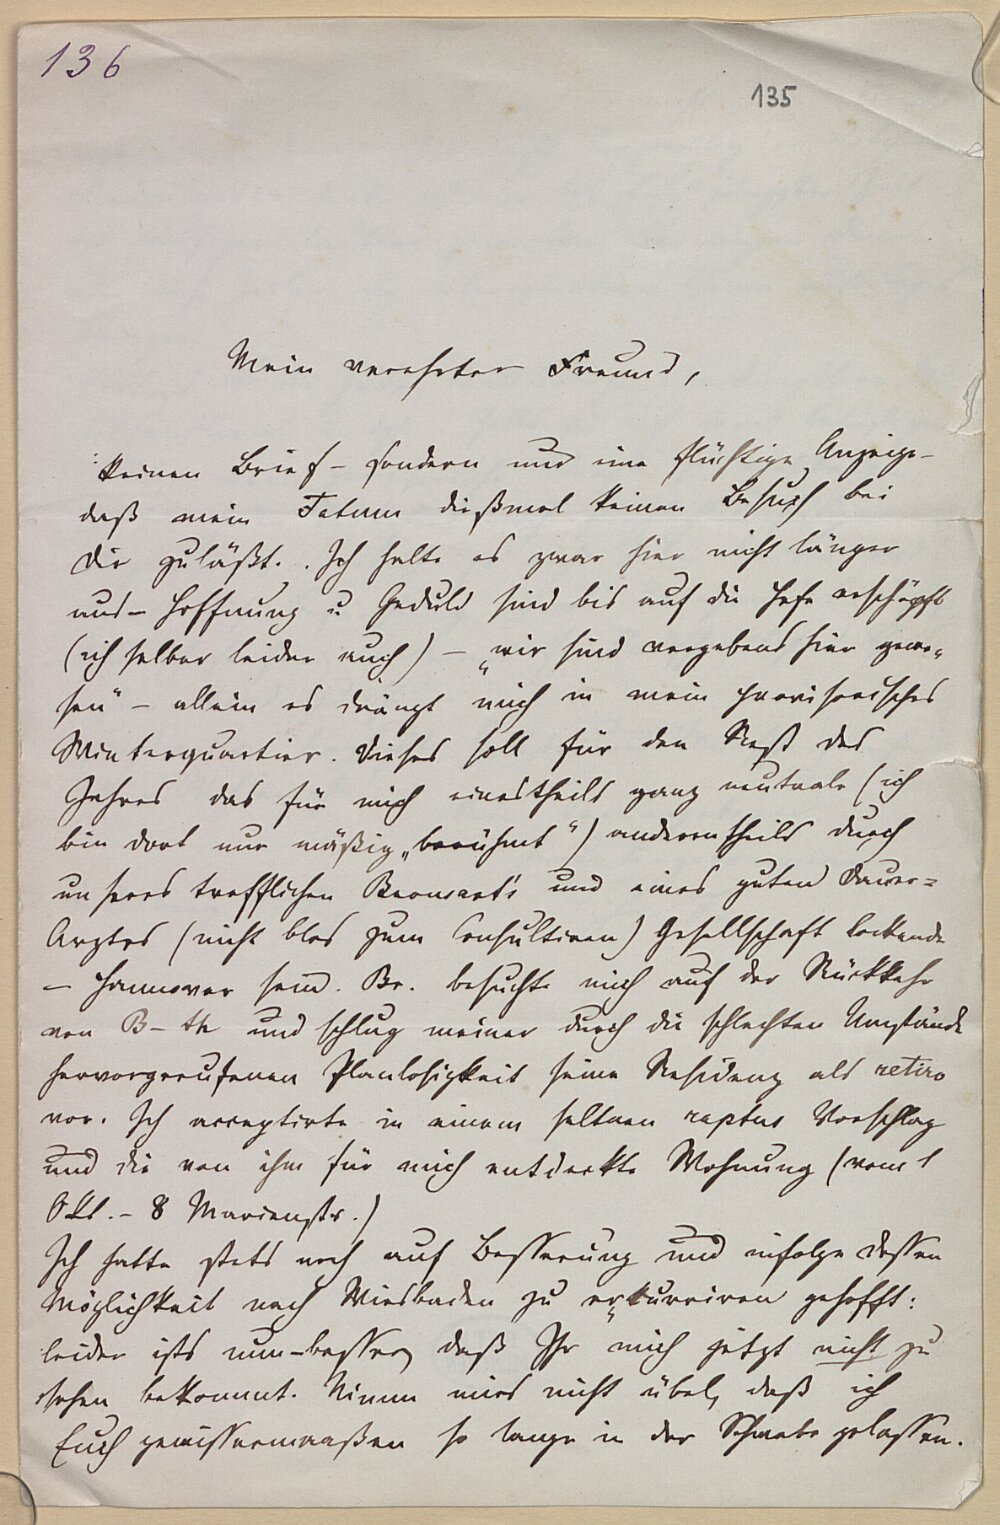 136
135
Mein verehrter Freund,
keinen Brief – sondern nur eine flüchtige Anzeige –
daß mein Fatum dießmal keinen Besuch bei
Dir zuläßt. Ich halte es zwar hier nicht länger
aus – Hoffnung u. Geduld sind bis auf die Hefe erschöpft
(ich selber leider auch) – „wir sind vergebens hier gewe-
sen“ – allein es drängt mich in mein provisorisches
Winterquartier. Dieses soll für den Rest des
Jahres das für mich einestheils ganz neutrale (ich
bin dort nur mäßig „berühmt“) anderentheils durch
unseres trefflichen Bronsart's und eines guten Dauer-
Arztes (nicht blos zum Consultiren) Gesellschaft lockende
– Hannover sein. Br. besuchte mich auf der Rückkehr
von B–th und schlug meiner durch die schlechten Umstände
hervorgerufenen Planlosigkeit seine Residenz als retiro
vor. Ich acceptirte in einem seltnen raptus Vorschlag
und die von ihm für mich entdeckte Wohnung (vom 1
Okt. – 8 Marienstr.)
Ich hatte stets noch auf Besserung und infolge dessen
Möglichkeit nach Wiesbaden zu excurriren gehofft:
leider ists nun – besser, daß Ihr mich jetzt nicht zu
sehen bekommt. Nimm mirs nicht übel, daß ich
Euch gewissermaaßen so lange in der Schwebe gelassen.